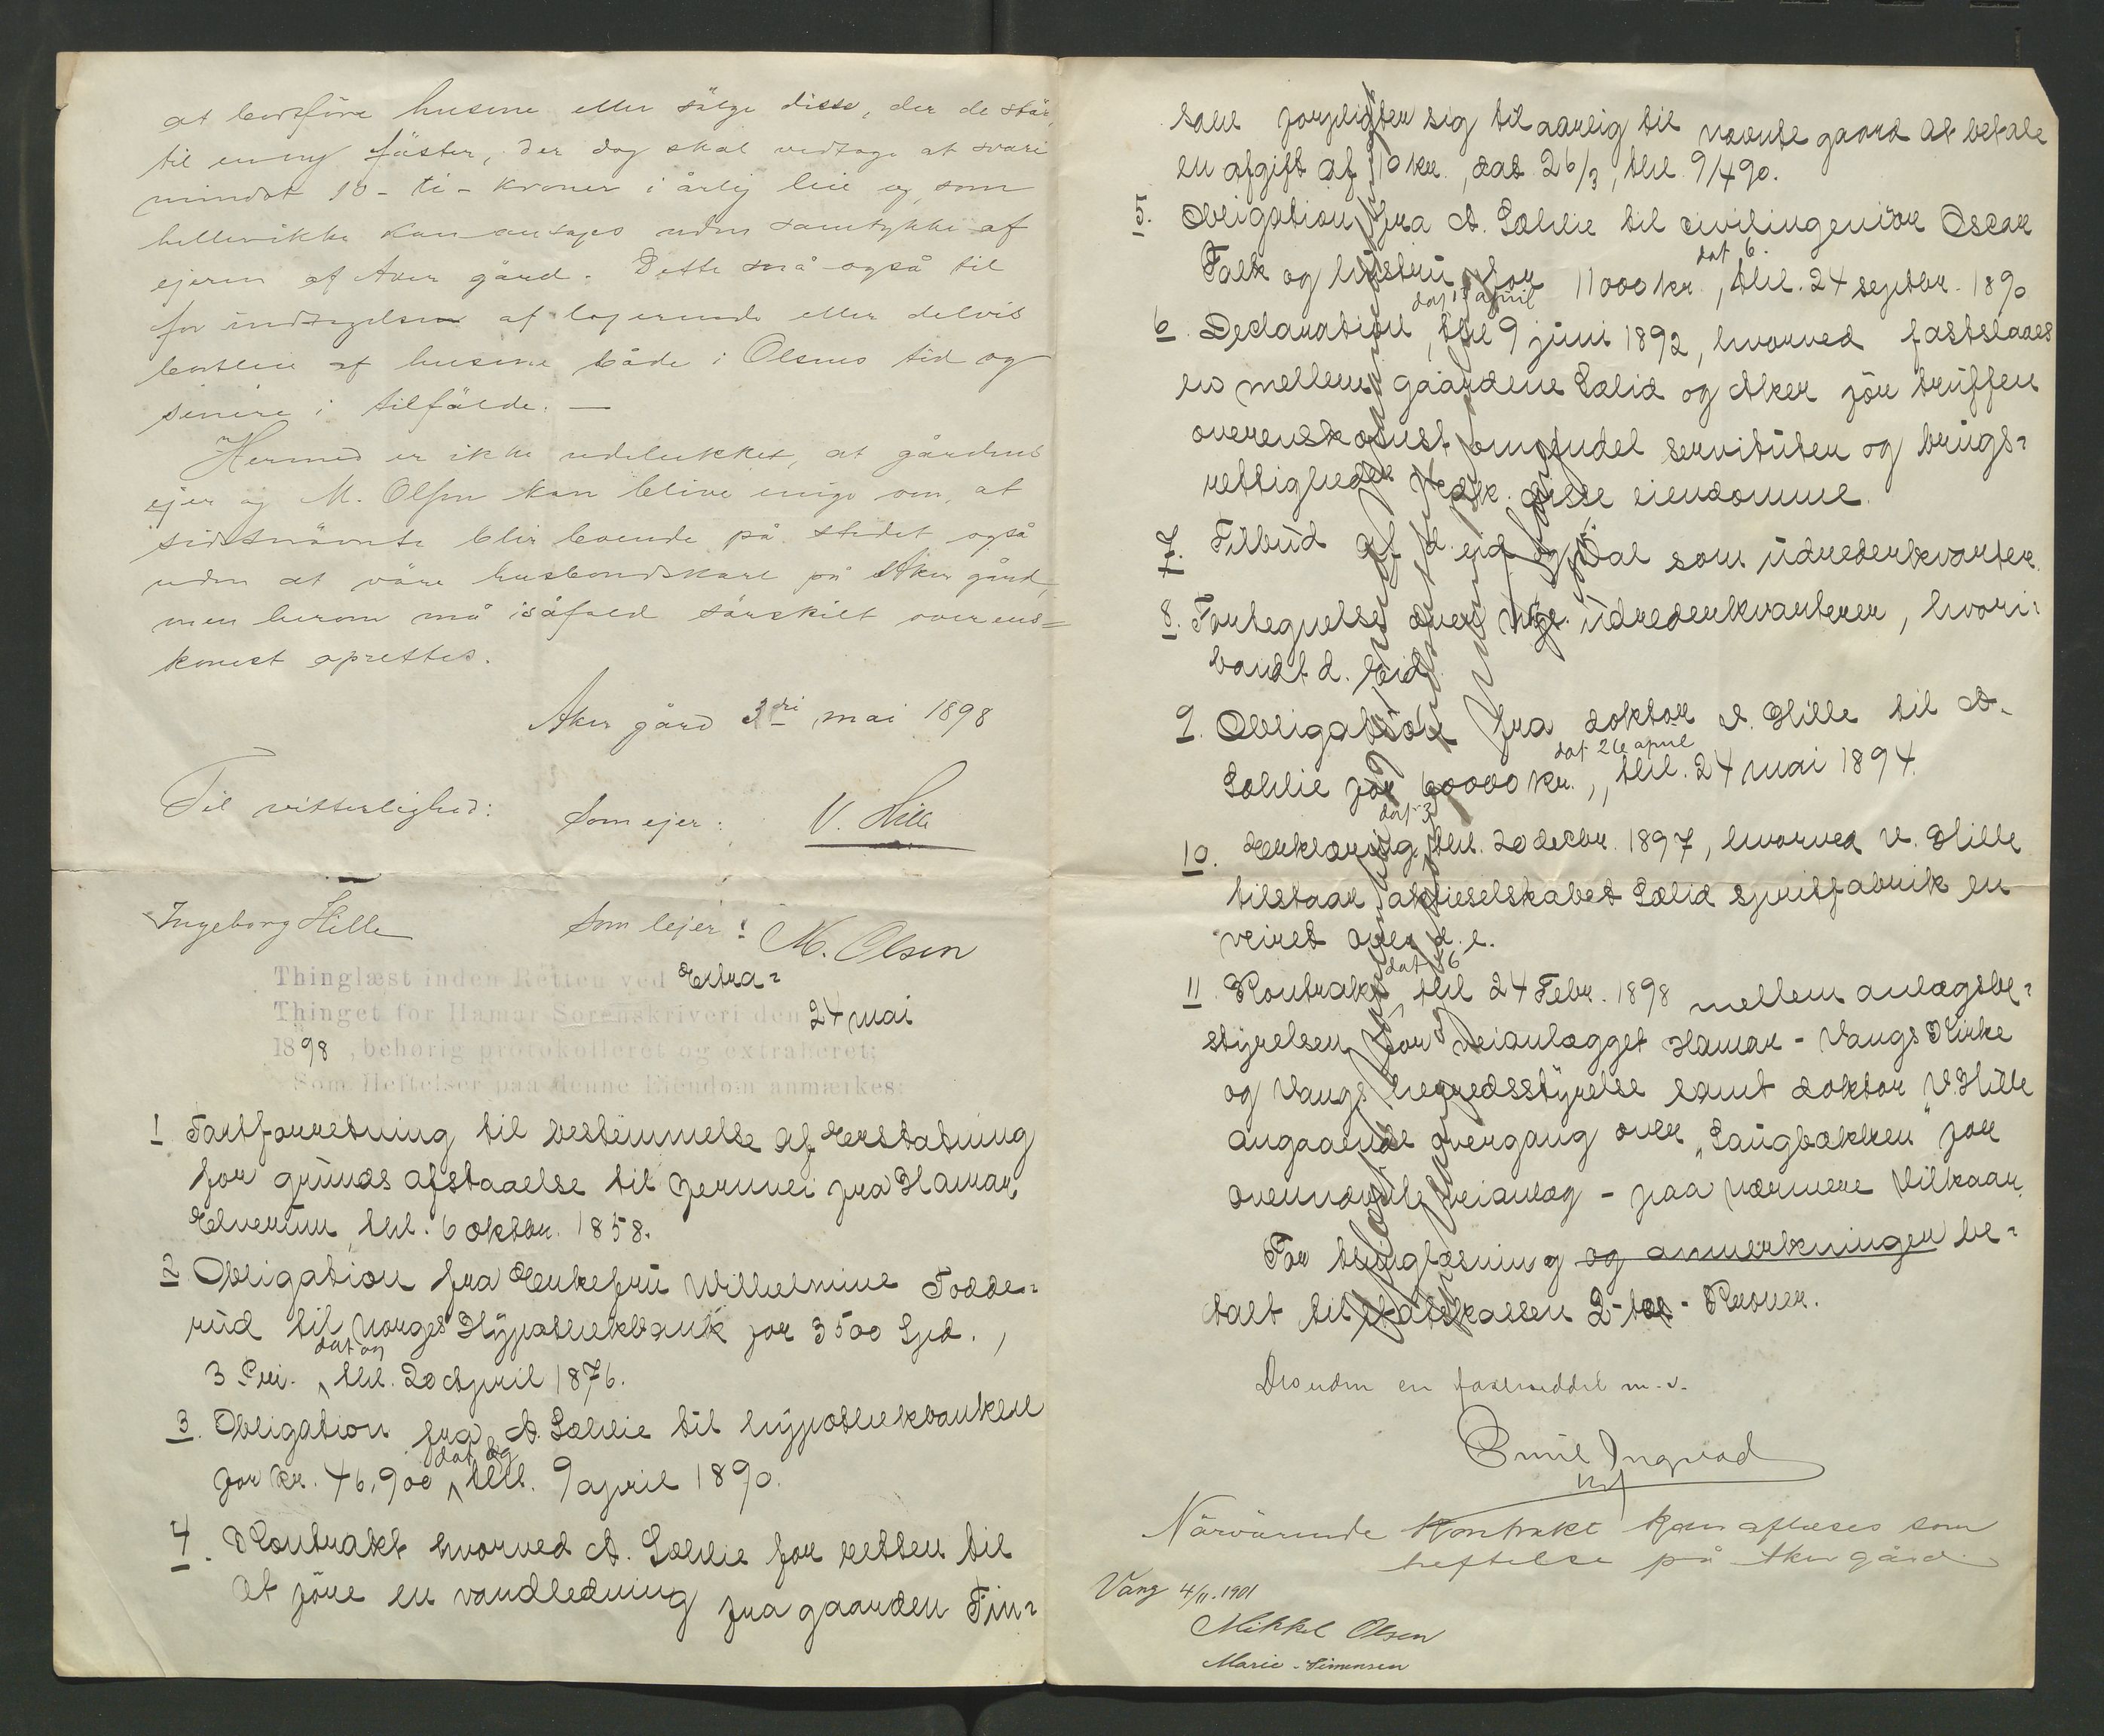 at bortföre husene eller sälge disse, der de står,
til en ny fäster, der dog skal vedtage at svare
mindst 10 - ti - kroner i årlig leie og som
hellerikke kan antages uden samtykke af
ejeren af Aker gård. Dette må også til
for indtagelsen af logerende eller delvis
bortleie af husene både i Olsens tid og
senere i tilfälde. —
Hermed er ikke udelukket, at gårdens
ejer og M. Olsen kan blive enige om, at
sidstnävnte blir boende på stedet også
uden at väre husbondskarl på Aker gård,
men herom må isåfald särskilt overens=
komst oprettes.
Aker gård 3di mai 1898
Til vitterlighed: Som ejer: V. Hille
Ingeborg Hille Som lejer: M. Olsen
Thinglæst inden Retten ved Extra-
Thinget for Hamar Sorenskriveri den 24 mai
1898, behørig protokolleret og extraheret;
Som Heftelser paa denne Eiendom anmærkes:
1 Taxtforretning til bestemmelse af Erstatning
for grunds afstaaelse til Jernvei fra Hamar,
Elverum, thl. 6 oktbr. 1858.
2 Obligation fra Enkefru Wilhelmine Todde-
rud til Norges Hypothekbank for 3500 Spd.,
dat og
3 Pri. thl. 20 April 1876.
3. Obligation fra A. Sæhlie til hypothekbanken
dat og
for kr. 46,900 thl. 9 april 1890.
4. Kontrakt hvorved A. Sæhlie for retten til
at føre en vandledning fra gaarden Fin-
sahl forpligter sig til aarlig til nævnte gaard at betale
en afgift af 10 kr., dat 26/3, thl 9/4 90.
5. Obligation fra A. Sæhlie til civilingeniør Oscar
dat 6.
Falk og hustru for 11000 kr, thl. 24 septbr. 1890
dat 19 april
6. Declaration, thl 9 juni 1892, hvorved fastslaaes
en mellem gaardene Sælid og Aker før truffen
overenskomst angaaendel servituter og brugs-
rettigheder disse eiendomme.
7. Tilbud af d. eid. og Dal som udrederkvarter.
8. Fortegnelse over udrederkvarterer, hvori-
bandt d. Eid.
9. Obligation fra doktor V. Hille til A.
dat 26 april
Sæhlie for 60000 kr., thl. 24 mai 1894.
dat 3
10. Erklæring thl. 20 decbr. 1897, hvorved V. Hille
tilstaar aktieselskabet Sælid spritfabrik en
veiret over d. e.
dat 16
11. Kontrakt, thl 24 Febr. 1898 mellem anlægsbe-
styrelsen for veianlægget Hamar - Vangs Kirke
og Vangs herredsstyrelse samt doktor V. Hille
angaaende overgang over "Saugbækken" for
ovennævnte veianlæg - paa nærmere Vilkaar.
For thinglæsning og anmerkninger be-
talt til statskassen 2 - to - Kroner.
Desuden en
Emil Ingvad
Närvärende Kontrakt kan aflæses som
heftelse på Aker gård
Vang 4/11. 1901
Mikkel Olsen
Marie Simensen